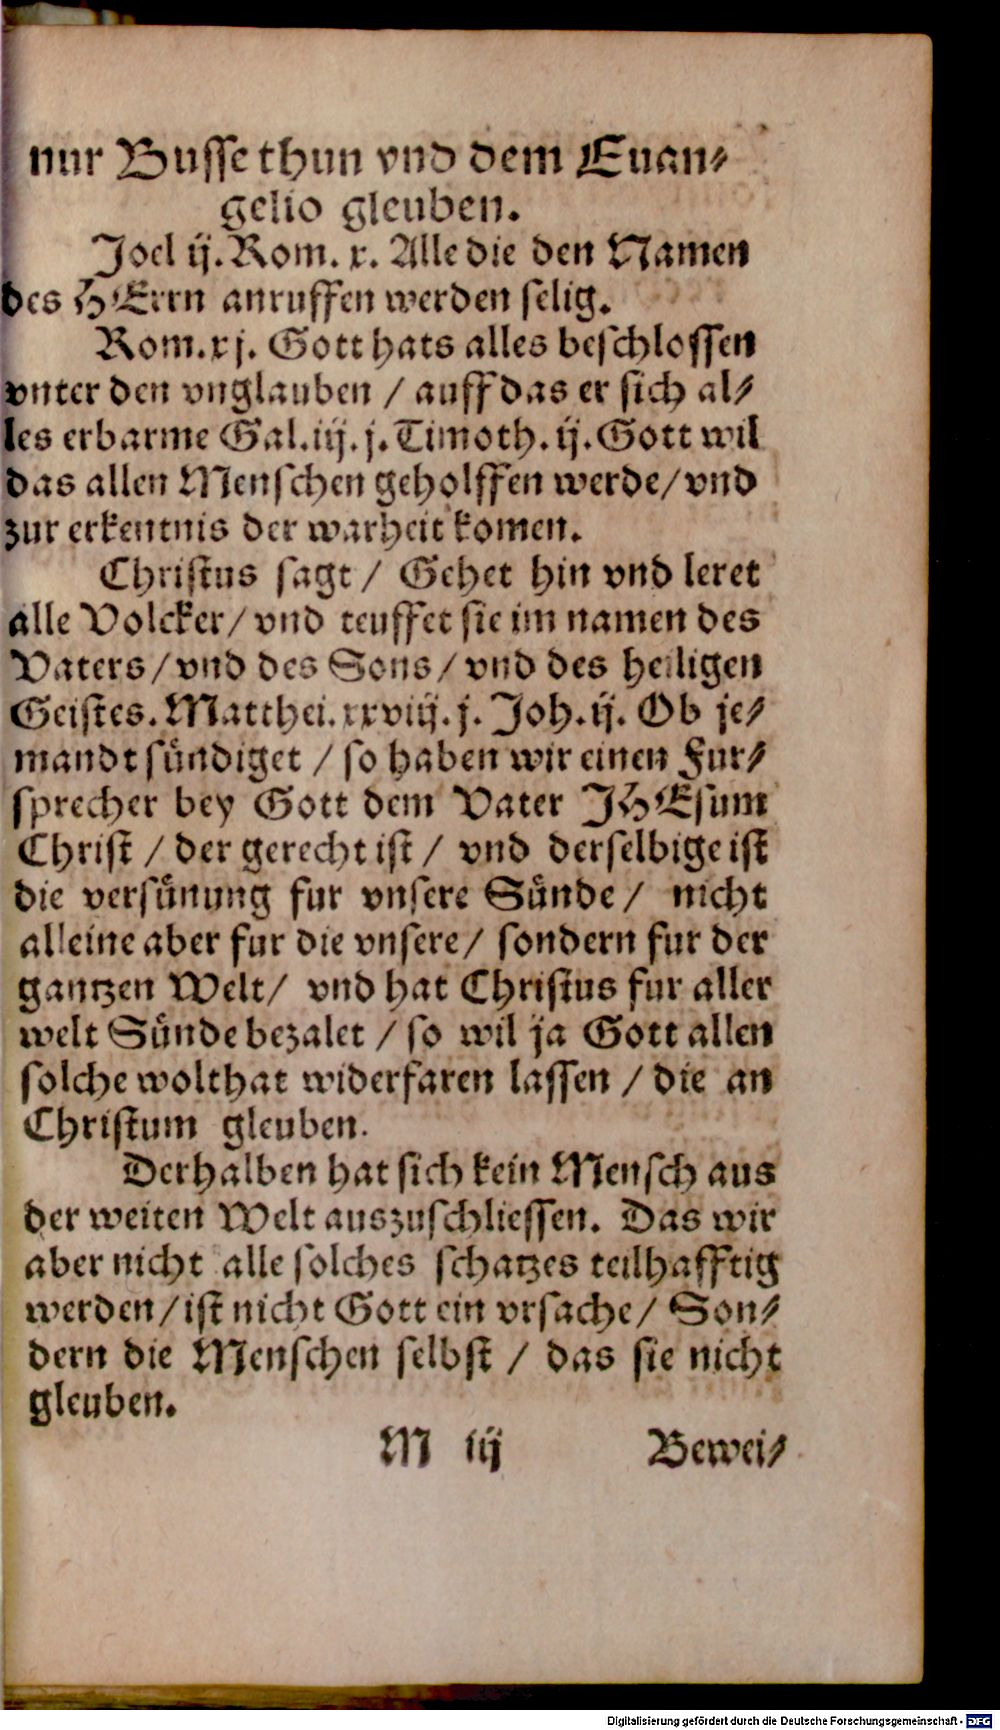 nur Busse thun vnd dem Euan-
gelio gleuben.
Joel ij. Rom. x. Alle die den Namen
des HErrn anruffen werden selig.
Rom. xj. Gott hats alles beschlossen
vnter den vnglauben / auff das er sich al-
les erbarme Gal. iij. j. Timoth. ij. Gott wil
das allen Menschen geholffen werde / vnd
zur erkentnis der warheit komen.
Christus sagt / Gehet hin vnd leret
alle Volcker / vnd teuffet sie im namen des
Vaters / vnd des Sons / vnd des heiligen
Geistes. Matthei. xxviij. j. Joh. ij. Ob je-
mandt sündiget / so haben wir einen Fur-
sprecher bey Gott dem Vater JHEsum
Christ / der gerecht ist / vnd derselbige ist
die versünung fur vnsere Sünde / nicht
alleine aber fur die vnsere / sondern fur der
gantzen Welt / vnd hat Christus fur aller
welt Sünde bezalet / so wil ja Gott allen
solche wolthat widerfaren lassen / die an
Christum gleuben.
Derhalben hat sich kein Mensch aus
der weiten Welt auszuschliessen. Das wir
aber nicht alle solches schatzes teilhafftig
werden / ist nicht Gott ein vrsache / Son-
dern die Menschen selbst / das sie nicht
gleuben.
M iij Bewei-
Digitalisierung gefördert durch die Deutsche Forschungsgemeinschaft - DFG